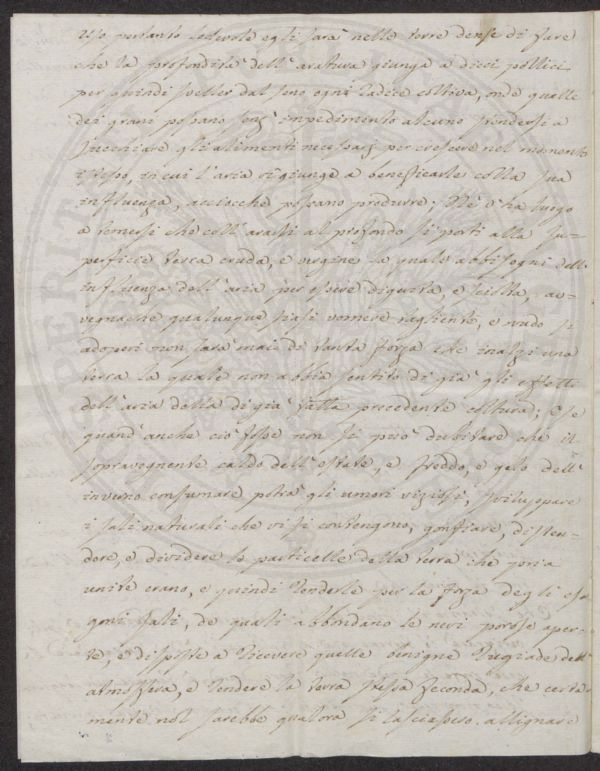 Uso pertanto lodevole egli sarà nelle terre dense di fare
che la profondità dell'aratura giunga a dieci pollici
per quindi sveller dal seno ogni radice cattiva, onde quelle
dei grani possano senz'impedimento alcuno stendersi a
ricercare gli alimenti necessarj per crescere nel momento
istesso, in cui l'aria vi giunge a beneficarle colla sua
influenza, acciocchè possano produrre; Nè v'ha luogo
a temersi che coll'ararsi al profondo si porti alla su-
perficie terra cruda, e vergine la quale abbisogni dell'
influenza dell'aria per essere digerita, e sciolta, av-
vegnachè qualunque siasi vomere tagliente, e nudo si
adoperi non sarà mai di tanta forza che inalzi una
terra la quale non abbia sentito di già gli effetti
dell'aria dalla di già fatta precedente coltura; E se
quand'anche ciò fosse non si può dubitare che il
sopravegnente caldo dell'estate, e freddo, e gelo dell'
inverno consumare potrà gli umori viziosi, sviluppare
i sali naturali che vi si contengono, gonfiare, disten-
dere, e dividere le particelle della terra che poria
unite erano, e quindi renderle per la forza degli
sali, de quali abbondano le nevi porose aper-
te, e disposte a ricevere quelle benigne rugiade dell'
atmosfera, e rendere la terra stessa feconda, che certa
mente nol sarebbe qualora si lasciasse allignare